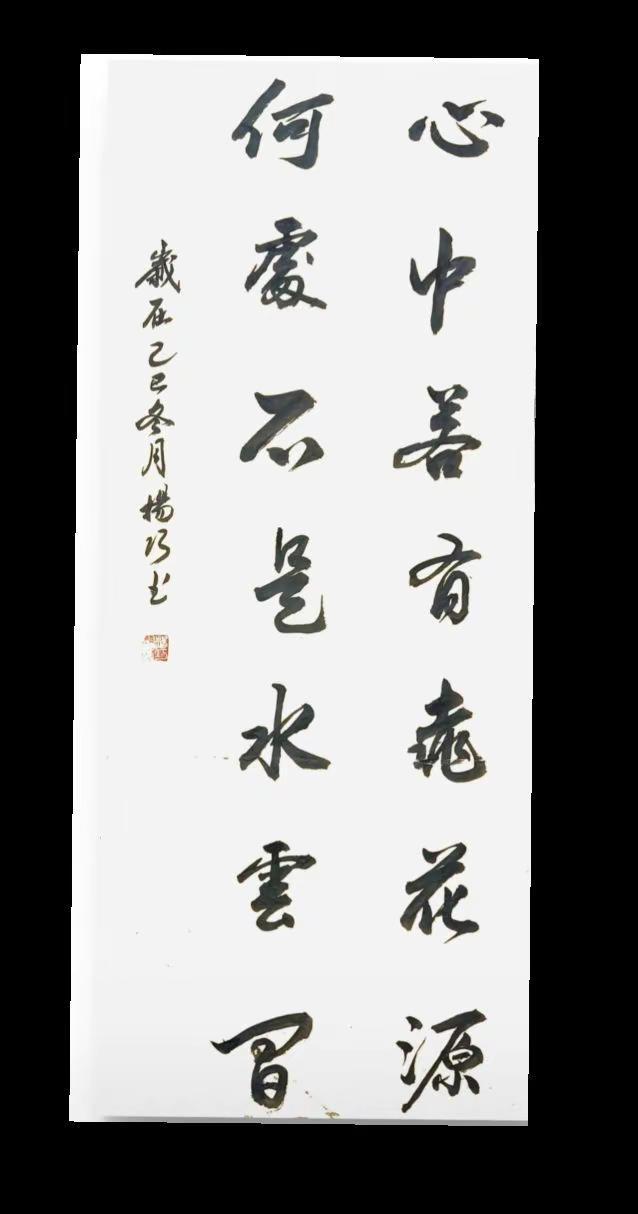 心中若有桃花源
何處不是水雲間
歲在乙巳冬月楊巧书